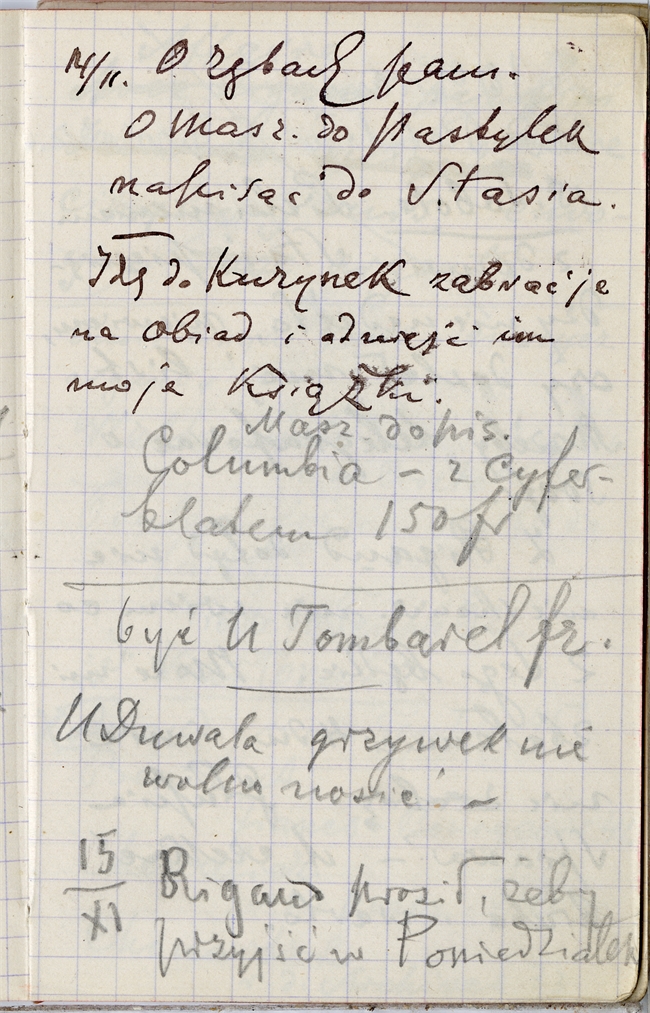 14/11. O zębach pam.
O masz. do pastylek
napisać do Stasia.
Idę do Kurynek zabrać je
na obiad i odnieść im
moje Książki.
Masz. do pis.
Columbia – z Cyfer-
blatem 150 fr
być u Tombarel fr.
U Duwala grzywek nie
wolno nosić! –
15/XI Rigaud prosił, żeby
przyjść w Poniedziałek